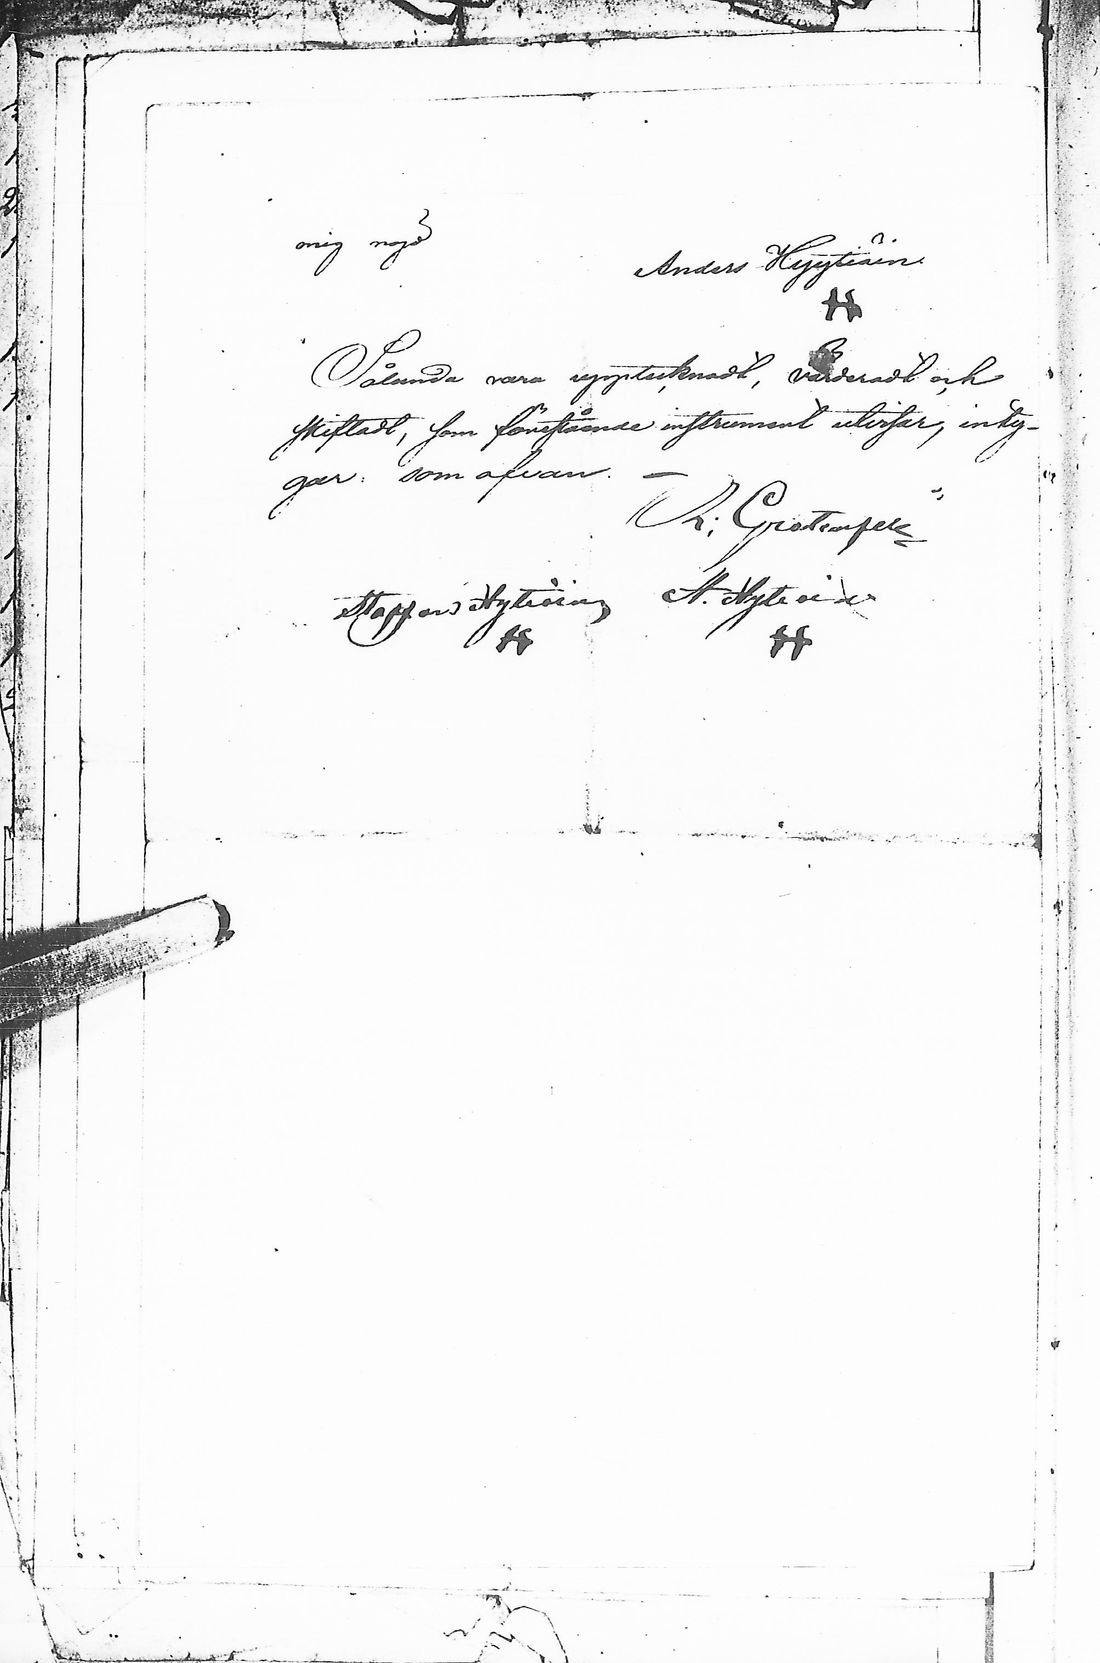 mig nöjd
Anders Hyytiäin
H
Sålunda vara uppteknadt, värderadt och
skiftadt, som förestående instrument utvisar, inty-
gar. som ofvan. —
K: Grotenfelt
Staffan Hytiäin
N. Hytiäin
H H